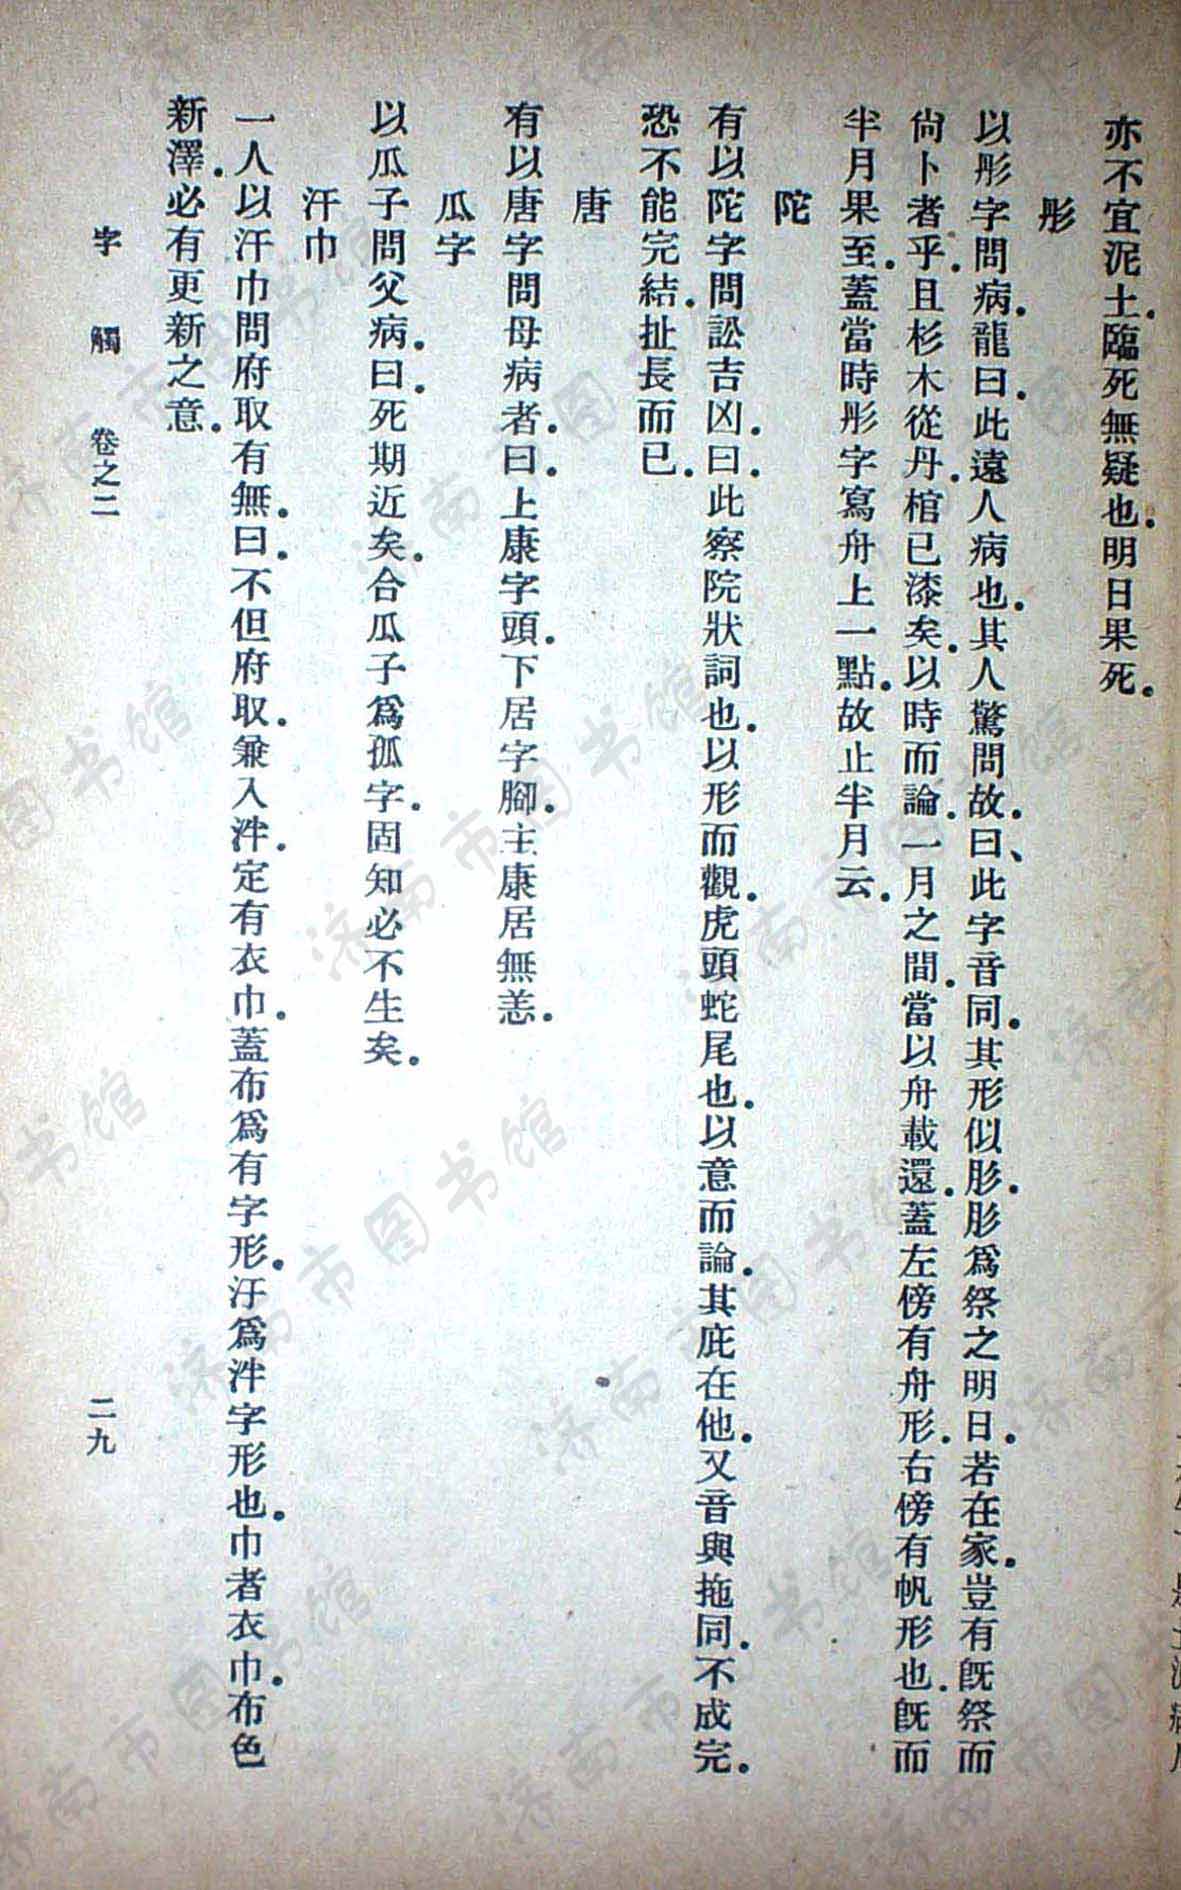 亦不宜泥土。臨死無疑也。明日果死。
彤
以彤字問病。龍曰。此遠人病也。其人驚問故。曰、此字音同。其形似肜。肜爲祭之明日。若在家。豈有旣祭而
尙卜者乎。且杉木從丹。棺已漆矣。以時而論。一月之間。當以舟載還。蓋左傍有舟形。右傍有帆形也。旣而
半月果至。蓋當時彤字寫舟上一點。故止半月云。
陀
有以陀字問訟吉凶。曰。此察院狀詞也。以形而觀。虎頭蛇尾也。以意而論。其庇在他。又音與拖同。不成完。
恐不能完結。扯長而已。
唐
有以唐字問母病者。曰。上康字頭。下居字腳。主康居無恙。
瓜字
以瓜子問父病。曰。死期近矣。合瓜子爲孤字。固知必不生矣。
汗巾
一人以汗巾問府取有無。曰。不但府取。兼入泮。定有衣巾。蓋布爲有字形。汗爲泮字形也。巾者衣巾。布色
新澤。必有更新之意。
字觸 卷之二 二九
济南市图书馆